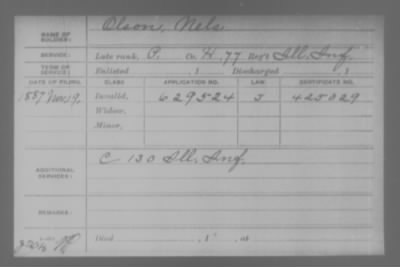 NAME OF SOLDIER: Olson, Nels
SERVICE: Late rank, P. Co. H, 77 Reg't Ill. Inf.
TERM OF SERVICE: Enlisted , 1 Discharged , 1
DATE OF FILING. CLASS. APPLICATION NO. LAW. CERTIFICATE NO.
1887 Nov. 19, Invalid, 629524 J 425029
Widow,
Minor,
ADDITIONAL SERVICES: C 130 Ill. Inf.
REMARKS:
Died , 1 , at